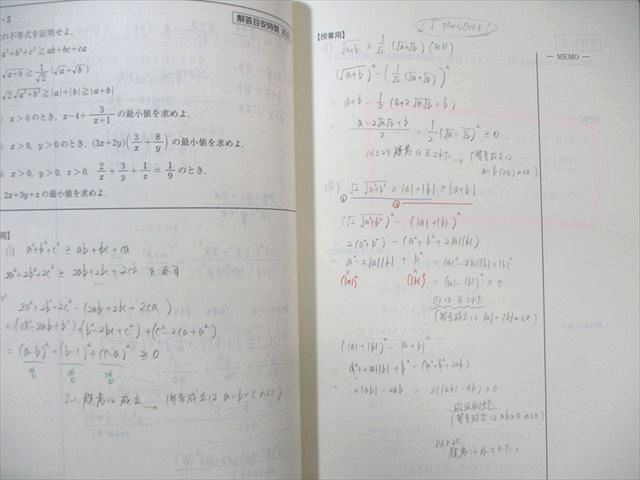 ・3
解答目安時間
の不等式を証明せよ.
a²+b²+c²≧ab+bc+ca
√a+b ≧ 1/√2 (√a+√b)
√2√a²+b² ≧|a|+|b|≧|a+b|
x>0のとき, x-4+ 3/(x+1) の最小値を求めよ.
x>0, y>0のとき, (3x+2y)(3/x + 8/y) の最小値を求めよ.
x>0, y>0, z>0, 2/x + 3/y + 1/z = 1/9 のとき,
2x+3y+z の最小値を求めよ.
用】
(i) a²+b²+c² ≧ ab+bc+ca
2a²+2b²+2c² ≧ 2ab+2bc+2ca を示す
2a²+2b²+2c² - (2ab+2bc+2ca)
= (a²-2ab+b²)+(b²-2bc+c²)+(c²-2ca+a²)
= (a-b)²+(b-c)²+(c-a)² ≧ 0
よって 題意は成立 (等号成立は a=b=cのとき)
【授業用】
√a+b ≧ 1/√2 (√a+√b) (≧0)
(√a+b)² - (1/√2 (√a+√b))²
= a+b - 1/2 (a+2√a√b+b)
= (a-2√a√b+b)/2 = 1/2 (√a-√b)² ≧0
以上より 題意は示された (等号成立は
a=b (≧0) のとき)
(iii) √2√a²+b² ≧ |a|+|b| ≧ |a+b|
① ②
(√2√a²+b²)² - (|a|+|b|)²
= 2(a²+b²) - (a²+b²+2|a||b|)
= a²-2|a||b|+b² = |a|²-2|a||b|+|b|²
(|a|)² (|b|)² = (|a|-|b|)² ≧ 0
①は示された
(等号成立は |a|=|b|のとき)
(|a|+|b|)² - |a+b|²
= a²+2|a||b|+b² - (a²+b²+2ab)
= 2|ab|-2ab = 2(|ab|-ab)≧0
②は示された
(等号成立は ab≧0 のとき)
以上より
題意は示された。
― MEMO ―